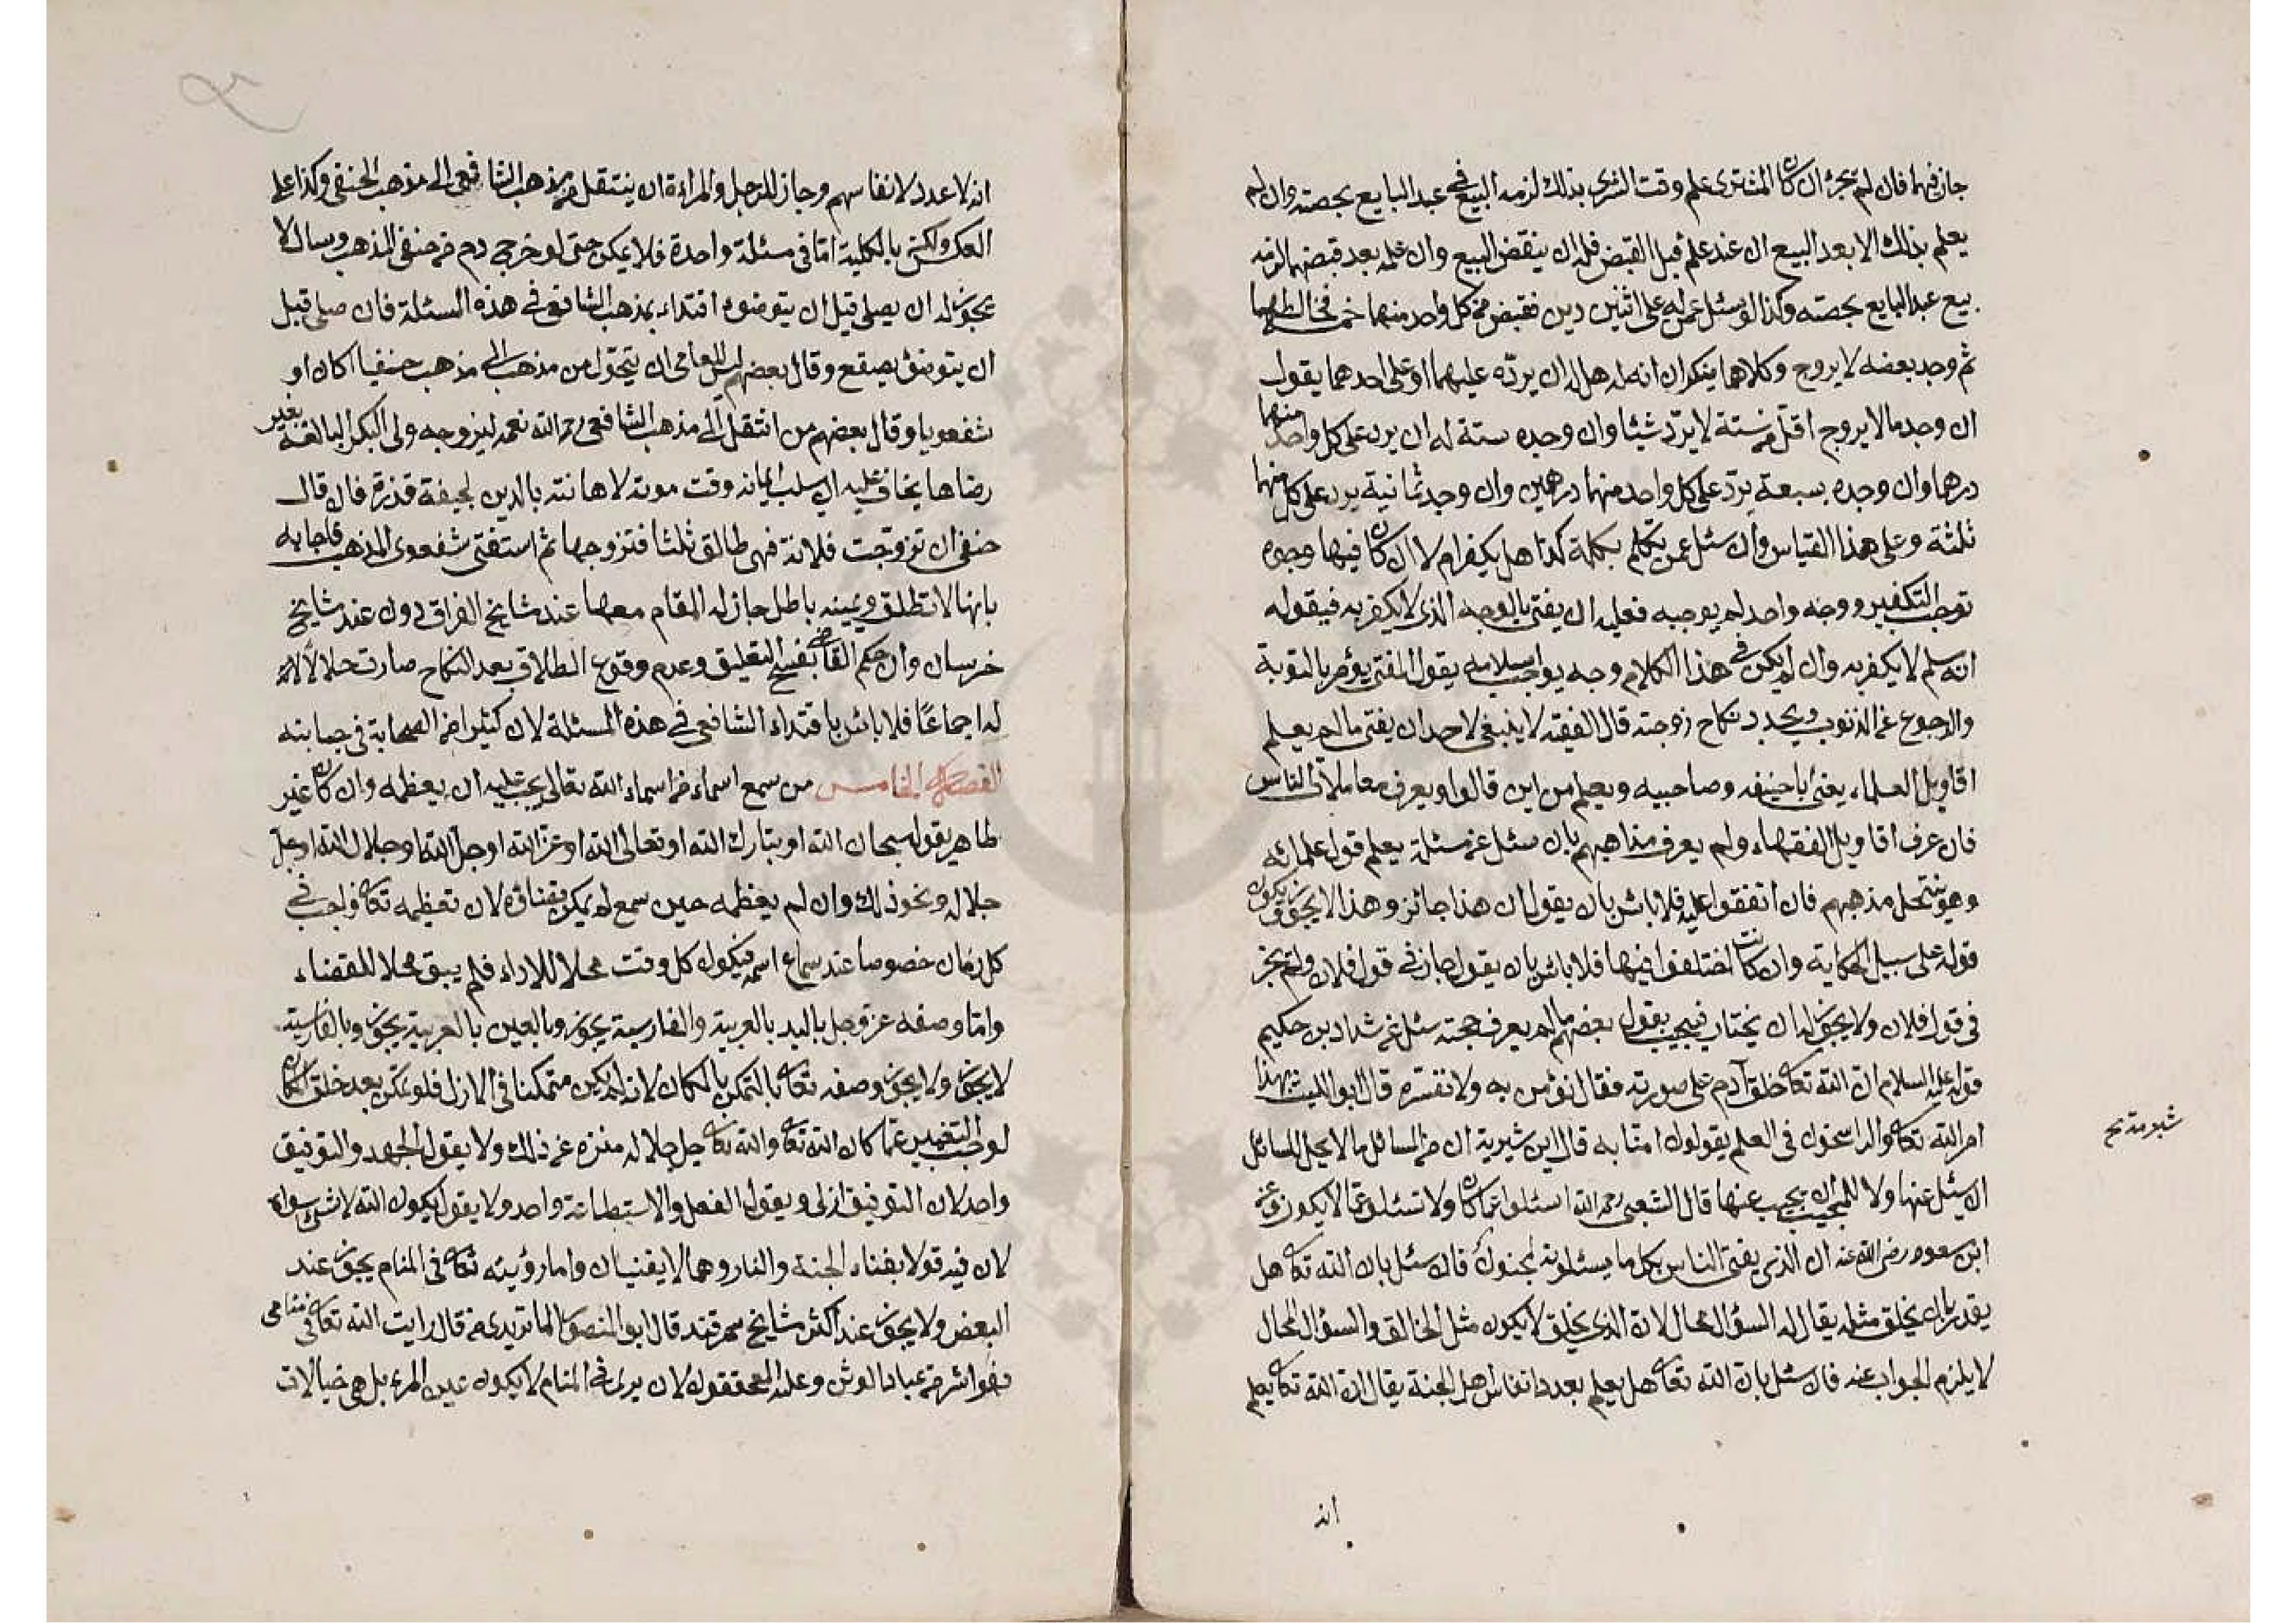 جاز فيهما فان لم تجزء ان كان المشترى علم وقت الشرى بذلك لزمه البيع فى عبد البايع بحصته وان لم
يعلم بذلك الا بعد البيع ان عند علم قبل القبض فله ان ينقض البيع وان علمه بعد قبضهما لزمه
بيع عبد البايع بحصته وكذا لو سئل عمن له على اثنين دين فقبض من كل واحد منهما فخالطهما
ثم وجد بعضه لا يروج وكلاهما ينكران انه له هل له ان يردّه عليهما او على احدهما يقول
ان وجد ما لا يروج اقل من ستة لا يردّ شيئا وان وجده ستة له ان يرد على كل واحد منهما
درهما وان وجده سبعة يردّ على كل واحد منهما درهمين وان وجد ثمانية يرد على كل منهما
ثلثة وعلى هذا القياس وان سئل عمن يتكلم بكلمة كذا هل يكفر ام لا ان كان فيها وجوه
توجب التكفير ووجه واحد لم يوجبه فعليه ان يفتى بالوجه الذى لا يكفر به فيقوله
انه مسلم لا يكفر به وان لم يكن فى هذا الكلام وجه يواجب اسلامه يقول المفتى يؤمر بالتوبة
والرجوع عن الذنوب ويجدد نكاح زوجته قال الفقه لا ينبغى لاحد ان يفتى ما لم يعلم
اقاويل العلماء يعنى ابا حنيفه وصاحبيه ويعلم من اين قالوا ويعرف معاملات الناس
فان عرف اقاويل الفقهاء ولم يعرف مذاهبهم بان سئل عن مسئلة يعلم قول علمائه
وهو ينتحل مذهبهم فان اتفقوا عليه فلا بائس بان يقول ان هذا جائز وهذا لا يجوز ويكون
قوله على سبيل الحكاية وان كانت اختلفوا فيها فلا بائس بان يقول جاز فى قول فلان ولم تجز
فى قول فلان ولا يجوز له ان يختار فيجيب بقول بعضهم ما لم يعرف حجته سئل عن شداد بن حكيم
قوله عليه السلام ان الله تعالى خلق آدم على صورته فقال نؤمن به ولا نفسّره قال ابو الليث بهذا
امر الله تعالى والراسخون فى العلم يقولون امنّا به قال ابن شبرية ان من المسائل ما لا يحل للسائل
ان يسئل عنها ولا للمجيب ان يجيب عنها قال الشعبى رحمه الله اسئلوا عما كان ولا تسئلوا عما لا يكون وعن
ابن مسعود رضى الله عنه ان الذى يفتى الناس بكل ما يسئلونه لمجنون فان سئل بان الله تعالى هل
يقدر بان يخلق مثله يقال له السؤال محال لان الذى يخلق لا يكون مثل الخالق والسؤال المحال
لا يلزم الجواب عنه فان سئل بان الله تعالى هل يعلم بعدد انفاس اهل الجنة يقال ان الله تعالى يعلم
انه
انه لا عدد لانفاسهم وجاز للرجل والمراءة ان ينتقل من مذهب الشافعى الى مذهب الحنفى وكذا على
العكس ولكن بالكلية امّا فى مسئلة واحدة فلا يمكن حتى لو خرج دم من حنفى المذهب وسال لا
يجوز له ان يصلى قبل ان يتوضوء اقتداء بمذهب الشافعى فى هذه المسئلة فان صلى قبل
ان يتوضؤ يصفع وقال بعضهم ليس للعامى ان يتحوّل من مذهب الى مذهب حنفيا كان او
شفعويا وقال بعضهم من انتقل الى مذهب الشافعى رحمه الله نعمد ليزوجه ولى البكر البالغة بغير
رضاها يخاف عليه ان يسلب ايمانه وقت موته لاهانته بالدين لجيفة قذرة فان قال
حنفى ان تزوّجت فلانة فهى طالق ثلثا فتزوجها ثم استفتى شفعوى المذهب فاجابه
بانها لا تطلق ويمينه باطل جاز له المقام معها عند مشايخ العراق دون عند مشايخ
خرسان وان حكم القاضى بفسخ التعليق وعدم وقوع الطلاق بعد النكاح صارت حلالا
له اجماعًا فلا بائس باقتداء الشافعى فى هذه المسئلة لان كثيرا من الصحابة فى جانبه
الفصل الخامس من سمع اسماء من اسماء الله تعالى يجب عليه ان يعظمه وان كان غير
طاهر يقوله سبحان الله او تبارك الله او تعالى الله او عزّ الله او جلّ الله او جلال الله او جلّ
جلاله ونحو ذلك وان لم يعظمه حين سمع لم يمكن قضاؤه لان تعظيمه تعالى واجب فى
كل زمان خصوصا عند سماع اسمه فيكون كل وقت محلا للاداء فلم يبق محلا للقضاء
وامّا وصفه عزّ وجل باليد بالعربية والفارسية يجوز وبالعين بالعربية يجوز وبالفارسية
لا يجوز ولا يجوز وصفه تعالى بالتمكن بالمكان لانه لم يكن متمكنا فى الازل فلو تمكن بعد خلق المكان
لوجب التغيير عمّا كان الله تعالى والله تعالى جل جلاله منزه عن ذلك ولا يقول الجهد والتوفيق
واحد لان التوفيق ازلى ويقول الفعل والاستطاعة واحد ولا يقول يكون الله لا شىء سواه
لان فيه قولا بفناء الجنة والنار وهما لا يفنيان وامّا رؤيته تعالى فى المنام يجوز عند
البعض ولا يجوز عند اكثر مشايخ سمرقند قال ابو المنصور الماتريدى من قال رايت الله تعالى فى منامى
فهو اشر من عباد الوثن وعليه المحققون لان يرى فى المنام لا يكون عين المرء بل هى خيالات